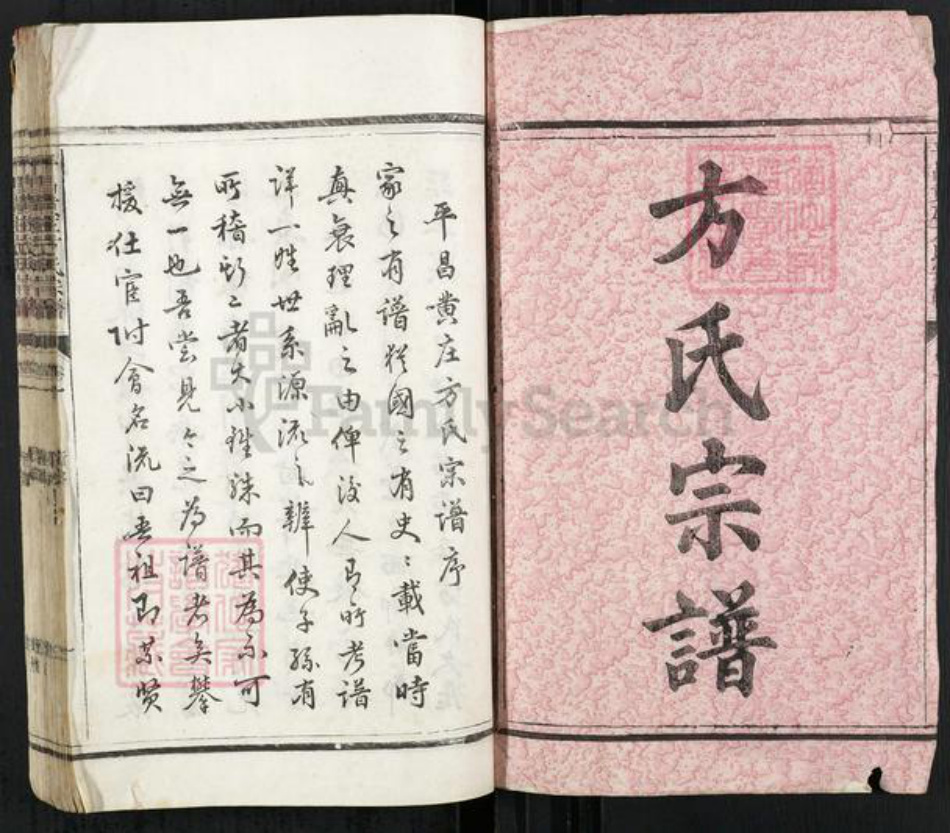 方氏宗譜
平昌黄庄方氏宗譜序
家之有譜猶國之有史〻載當時
真衰理亂之由俾後人即所考譜
詳一姓世系源流之辨使子孫有
所稽斯二者大小雖殊而其為不可
無一也吾嘗見今之為譜者矣攀
援仕宦附會名流曰吾祖即某賢
FamilySearch